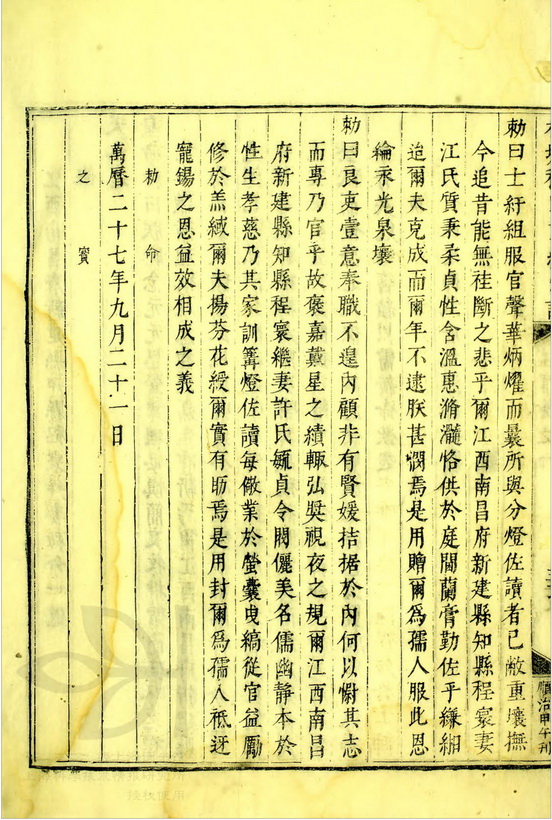 順治甲午刊
勅曰士紆組服官聲華炳燿而曩所與分燈佐讀者已敝重壤撫
今追昔能無袿斷之悲乎爾江西南昌府新建縣知縣程寰妻
江氏質秉柔貞性含溫惠滫瀡恪供於庭闈蘭膏勤佐乎縹緗
迨爾夫克成而爾年不逮朕甚憫焉是用贈爾爲孺人服此恩
綸永光泉壤
勅曰良吏壹意奉職不遑內顧非有賢媛拮据於內何以慰其志
而專乃官乎故褒嘉戴星之績輒弘奬視夜之規爾江西南昌
府新建縣知縣程寰繼妻許氏毓貞令閥儷美名儒幽靜本於
性生孝慈乃其家訓篝燈佐讀每儆業於螢囊曳縞從官益勵
修於羔緎爾夫揚芬花綬爾實有助焉是用封爾爲孺人祗迓
寵錫之恩益效相成之義
勅命
萬曆二十七年九月二十一日
之寳